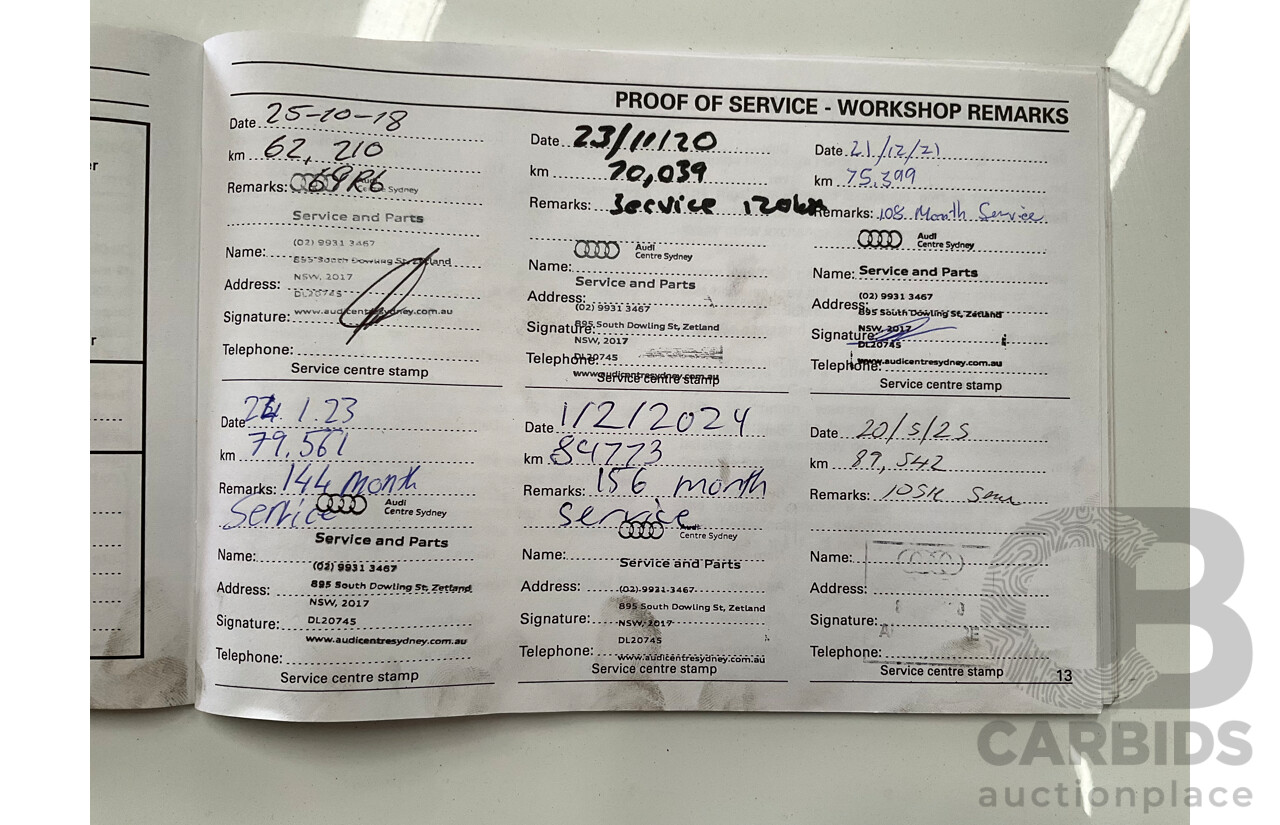 er
r
PROOF OF SERVICE - WORKSHOP REMARKS
Date 25-10-18
km 62, 210
Remarks:
Centre Sydney
Service and Parts
Name: (02) 9931 3467
895 South Dowling St, Zetland
Address: NSW, 2017
DL20745
Signature: www.audicentresydney.com.au
Telephone:
Service centre stamp
Date 23/11/20
km 70,039
Remarks: Service 120km
Audi
Centre Sydney
Name: Service and Parts
Address: (02) 9931 3467
Signature: 895 South Dowling St, Zetland
NSW, 2017
Telephone: DL20745
www.audicentresydney.com.au
Service centre stamp
Date 21/12/21
km 75,399
Remarks: 108 Month Service
Audi
Centre Sydney
Name: Service and Parts
Address: (02) 9931 3467
895 South Dowling St, Zetland
Signature: NSW, 2017
DL20745
Telephone: www.audicentresydney.com.au
Service centre stamp
Date 24.1.23
km 79,561
Remarks: 144 Month
Service
Audi
Centre Sydney
Service and Parts
Name: (02) 9931 3467
Address: 895 South Dowling St, Zetland
NSW, 2017
Signature: DL20745
www.audicentresydney.com.au
Telephone:
Service centre stamp
Date 1/2/2024
km 84773
Remarks: 156 month
Service
Audi
Centre Sydney
Name: Service and Parts
Address: (02) 9931 3467
895 South Dowling St, Zetland
Signature: NSW, 2017
DL20745
Telephone: www.audicentresydney.com.au
Service centre stamp
Date 20/5/25
km 89,542
Remarks: 105K
Name:
Address:
Signature:
Telephone:
Service centre stamp
13
CB
CARBIDS
auctionplace